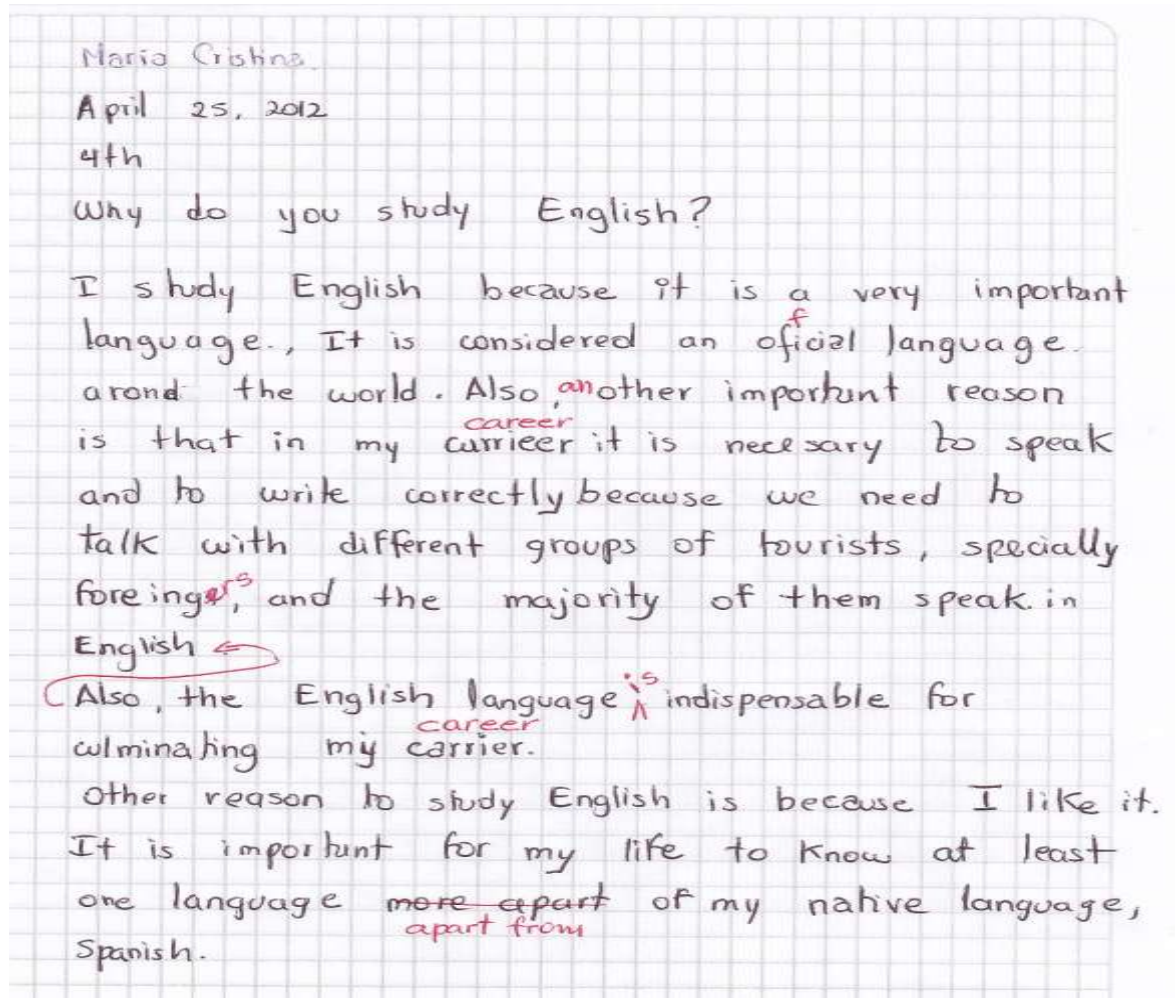 Maria Cristina.
April 25, 2012
4th
Why do you study English?
I study English because it is a very important
f
language., It is considered an oficial language.
arond the world. Also, another important reason
career
is that in my currieer it is necesary to speak
and to write correctly because we need to
talk with different groups of tourists, specially
foreingers, and the majority of them speak in
English
Also, the English language is indispensable for
career
culminating my carrier.
Other reason to study English is because I like it.
It is important for my life to know at least
one language more apart of my native language,
apart from
Spanish.